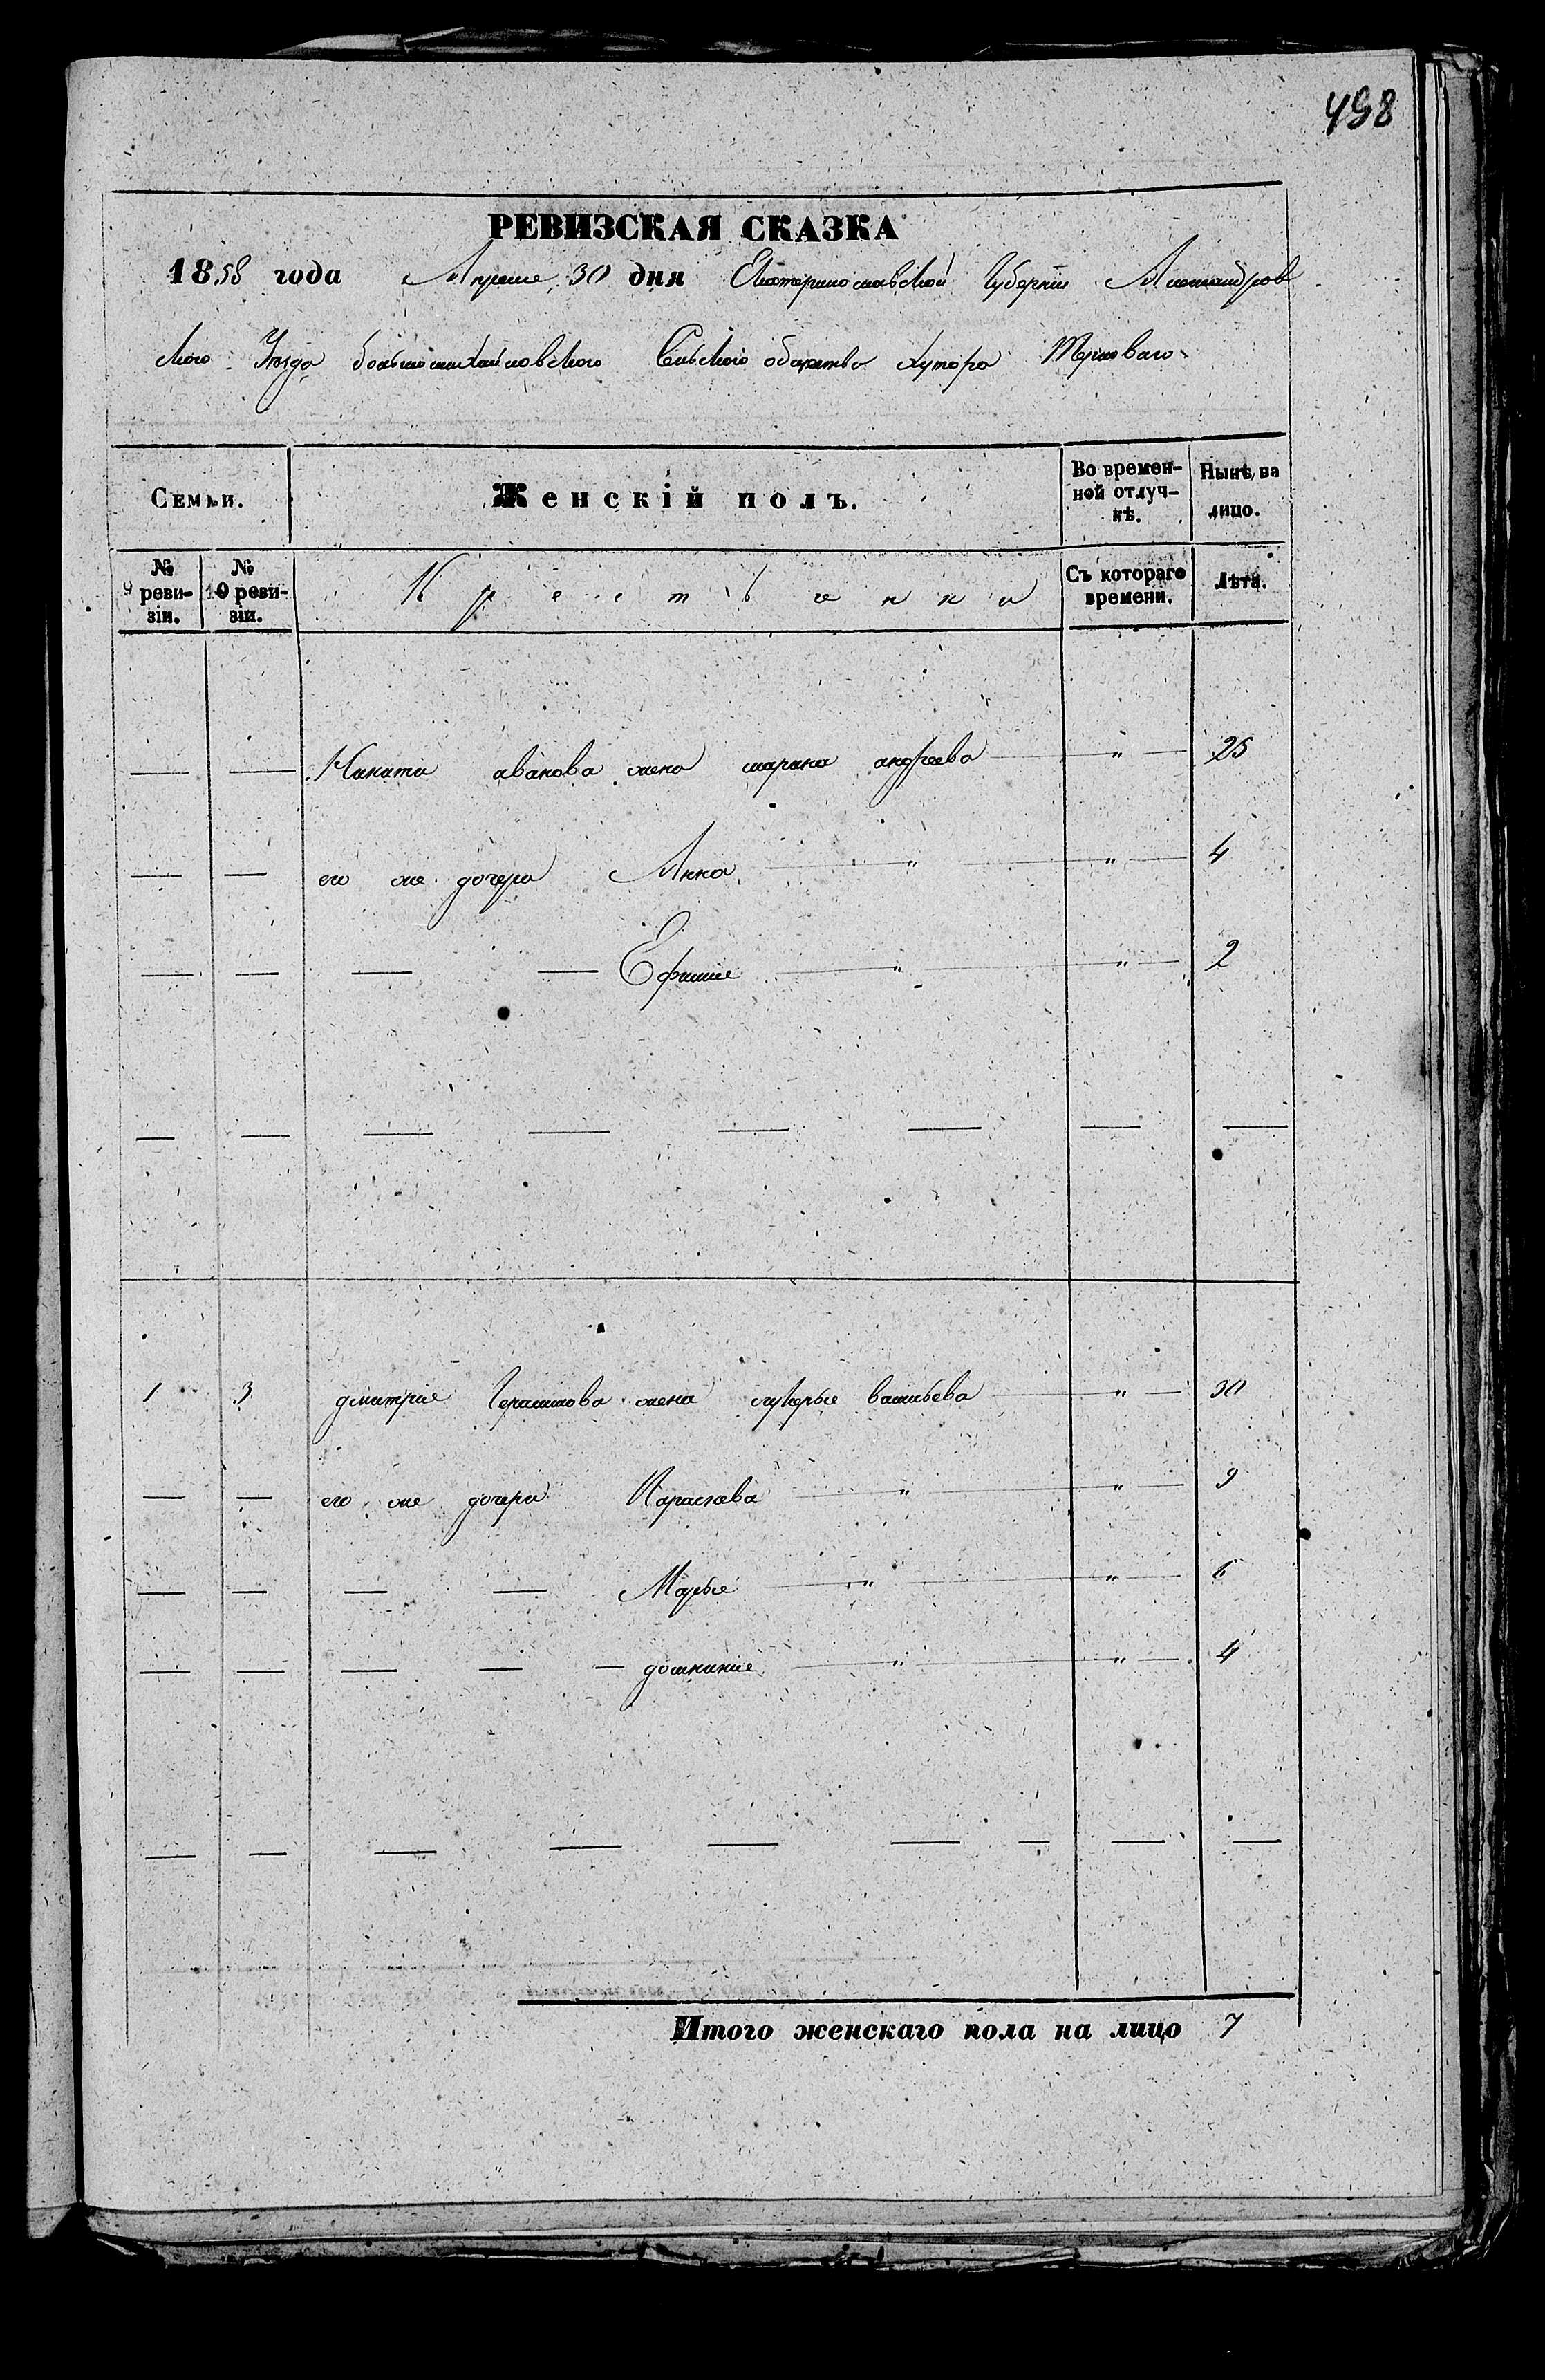 498
РЕВИЗСКАЯ СКАЗКА
1858 года Апреля 30 дня Екатеринославской Губернии Александров
ского Уезда большемихайловского Сельского общества хутора Терноваго
Семьи. Женскій полъ. Во времен- Нынѣ на
ной отлуч- лицо.
кѣ.
№ № Крестьянки Съ котораго лѣта.
9 реви- 10 реви- времени.
зіи. зіи.
— — Никити иванова жена марина андреева — " — 25
— — его же дочери Анна — " — " — 4
— — — — Ефимия — " — " — 2
— — — — — — — —
1 3 дмитрия Герасимова жена лукерья васильева — " — 30
— — его же дочери Параскева — " — " — 9
— — — — Марья — " — " — 6
— — — — — домникия — " — " — 4
— — — — — — — — —
Итого женскаго пола на лицо 7